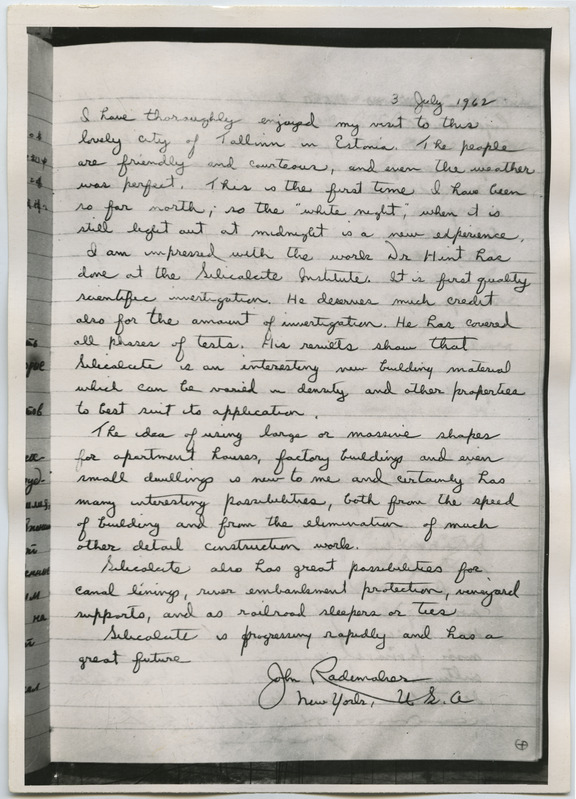 3 July 1962
I have thoroughly enjoyed my visit to this
lovely city of Tallinn in Estonia. The people
are friendly and courteous, and even the weather
was perfect. This is the first time I have been
so far north; so the "white night", when it is
still light out at midnight is a new experience.
I am impressed with the work Dr Hint has
done at the Silicalcite Institute. It is first quality
scientific investigation. He deserves much credit
also for the amount of investigation. He has covered
all phases of tests. His results show that
Silicalcite is an interesting new building material
which can be varied in density and other properties
to best suit its application.
The idea of using large or massive shapes
for apartment houses, factory buildings and even
small dwellings is new to me and certainly has
many interesting possibilities, both from the speed
of building and from the elimination of much
other detail construction work.
Silicalcite also has great possibilities for
canal linings, river embankment protection, vineyard
supports, and as railroad sleepers or ties
Silicalcite is progressing rapidly and has a
great future
John Rademaker
New York, U.S.A